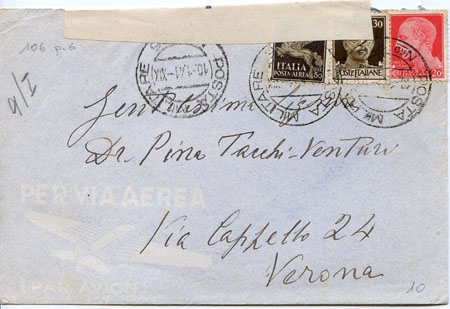 106 p.6
4/I
POSTA MILITARE
(10.1.41-XIX)
ITALIA
POSTA AEREA
50
30
POSTE ITALIANE
20
POSTA MILITARE
POSTA MILITARE
Gentilissima
Dr. Pina Tacchi-Venturi
Via Cappello 24
Verona
PER VIA AEREA
(PAR AVION
10